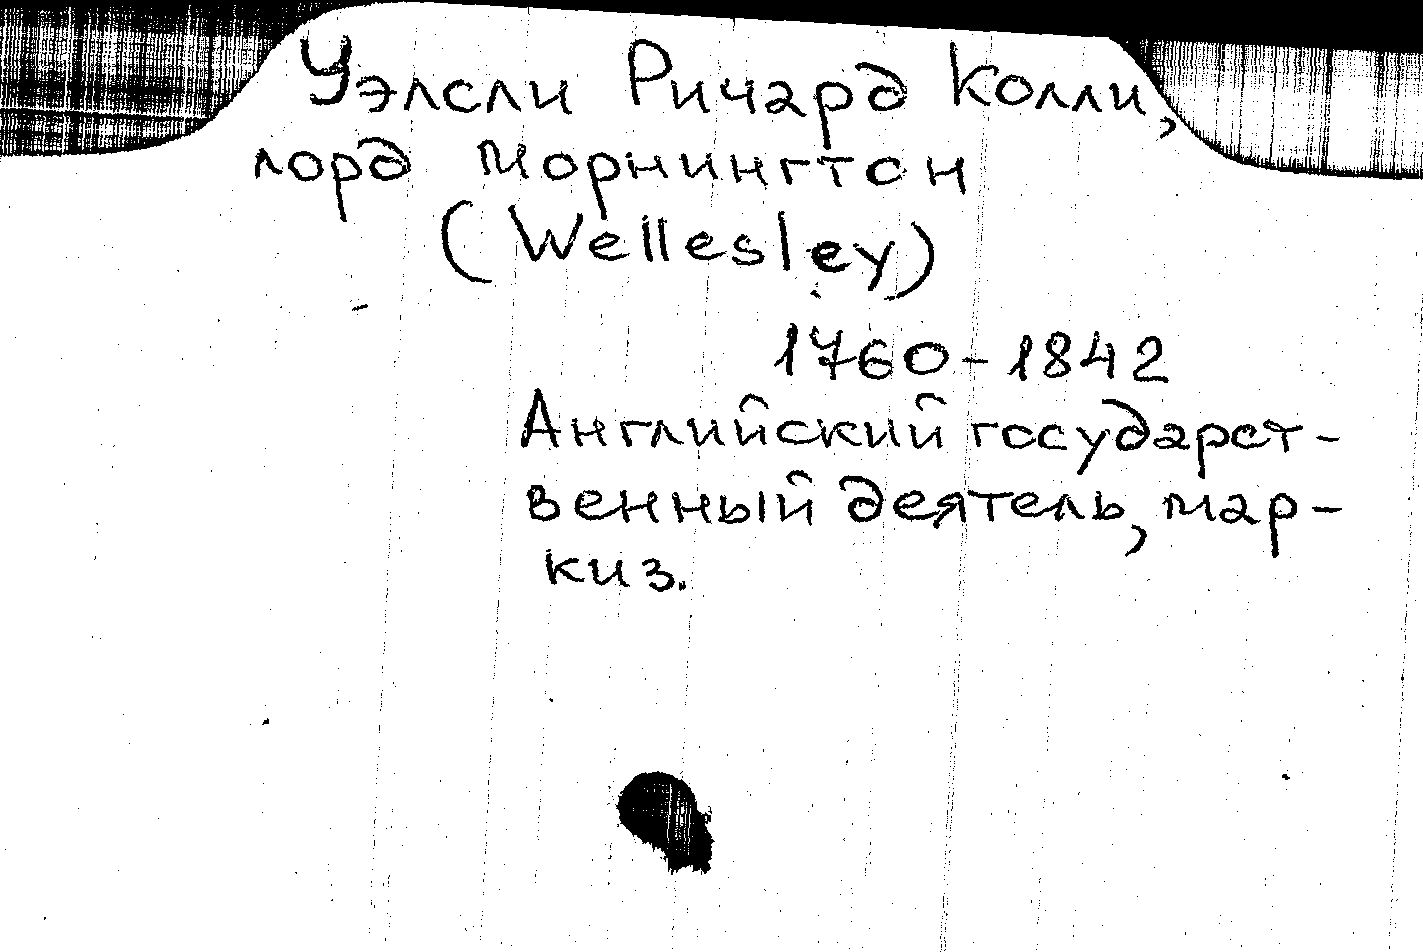 Уэлсли Ричард Колли,
лорд Морнингтон
(Wellesley)
1760-1842
Английский государст-
венный деятель, мар-
киз.